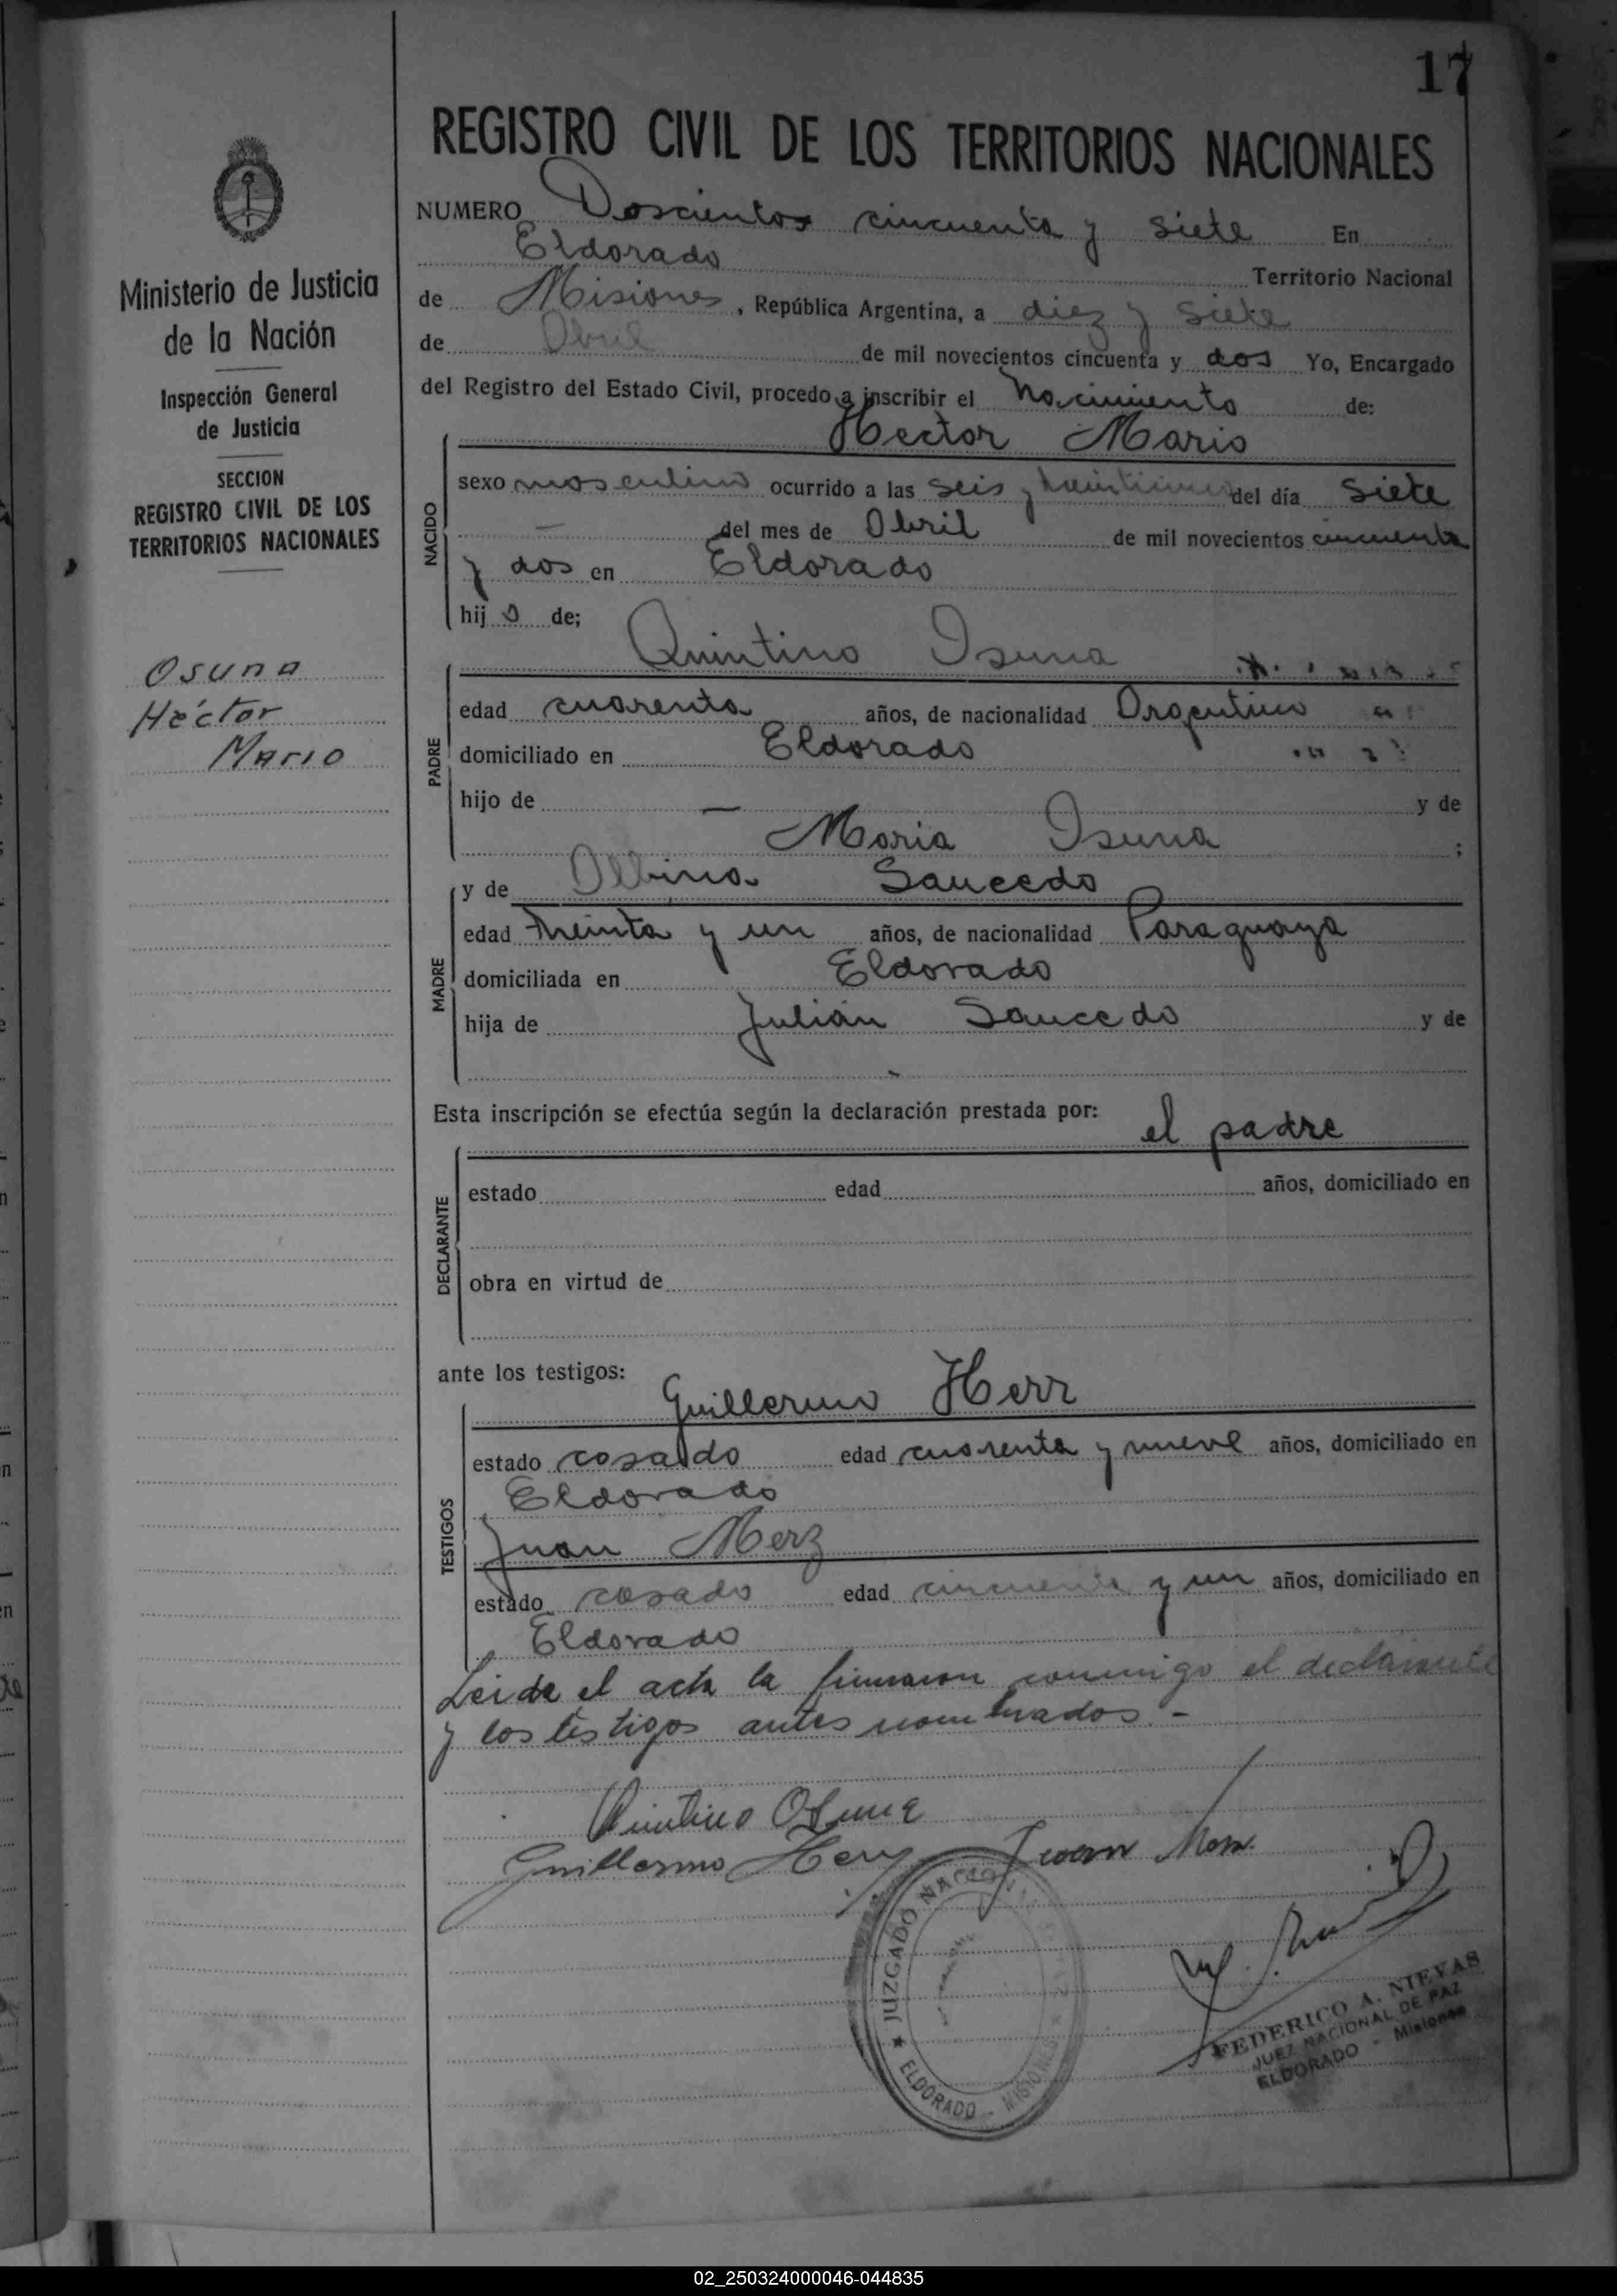 17
REGISTRO CIVIL DE LOS TERRITORIOS NACIONALES
NUMERO Doscientos cincuenta y siete En
Eldorado Territorio Nacional
de Misiones, República Argentina, a diez y siete
de Abril de mil novecientos cincuenta y dos Yo, Encargado
del Registro del Estado Civil, procedo a inscribir el Nacimiento de:
Hector Mario
NACIDO
sexo masculino ocurrido a las seis y del día siete
— del mes de Abril de mil novecientos cincuenta
y dos en Eldorado
hijo de;
Quintino Osuna
PADRE
edad cuarenta años, de nacionalidad Argentino
domiciliado en Eldorado
hijo de — y de
Maria Osuna ;
y de Albina Saucedo
MADRE
edad treinta y un años, de nacionalidad Paraguaya
domiciliada en Eldorado
hija de Julián Saucedo y de
Esta inscripción se efectúa según la declaración prestada por:
el padre
DECLARANTE
estado edad años, domiciliado en
obra en virtud de
ante los testigos:
Guillermo Herr
TESTIGOS
estado casado edad cuarenta y nueve años, domiciliado en
Eldorado
Juan Merz
estado casado edad cincuenta y un años, domiciliado en
Eldorado
Leida el acta la firmaron conmigo el declarante
y los testigos antes nombrados.-
Quintino Osuna
Guillermo Herr Juan Merz
JUZGADO NACIONAL DE PAZ
★ ELDORADO - MISIONES ★
FEDERICO A. NIEVAS
JUEZ NACIONAL DE PAZ
ELDORADO - Misiones
Ministerio de Justicia
de la Nación
Inspección General
de Justicia
SECCION
REGISTRO CIVIL DE LOS
TERRITORIOS NACIONALES
Osuna
Héctor
Mario
02_250324000046-044835